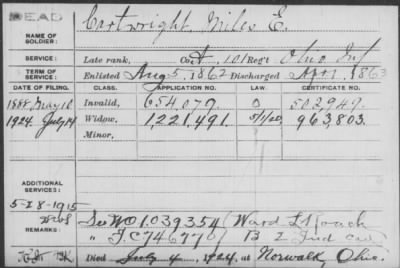 DEAD
NAME OF SOLDIER: Cartwright, Miles E.
SERVICE: Late rank, Co. A, 101 Reg't Ohio Inf
TERM OF SERVICE: Enlisted Aug 5, 1862 Discharged Apr 1, 1863
DATE OF FILING. CLASS. APPLICATION NO. LAW. CERTIFICATE NO.
1888 May 10 Invalid, 654,079 502,949
1924 July 14 Widow, 1,221,491. 5/1/20 963,803.
Minor,
ADDITIONAL SERVICES:
REMARKS: See WO 1.039354 Ward
" I.C 746770 B 2 Ind Cav
Died July 4, 1924, at Norwalk Ohio.